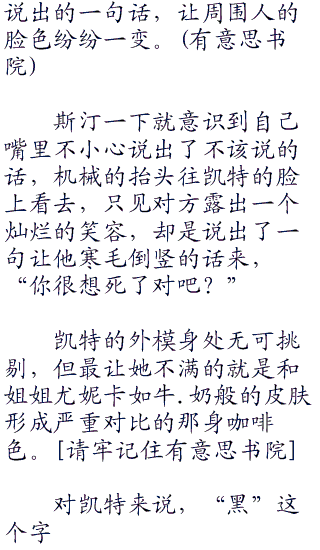 说出的一句话，让周围人的
脸色纷纷一变。(有意思书
院)
斯汀一下就意识到自己
嘴里不小心说出了不该说的
话，机械的抬头往凯特的脸
上看去，只见对方露出一个
灿烂的笑容，却是说出了一
句让他寒毛倒竖的话来，
“你很想死了对吧？”
凯特的外模身处无可挑
剔，但最让她不满的就是和
姐姐尤妮卡如牛.奶般的皮肤
形成严重对比的那身咖啡
色。[请牢记住有意思书院]
对凯特来说，“黑”这
个字